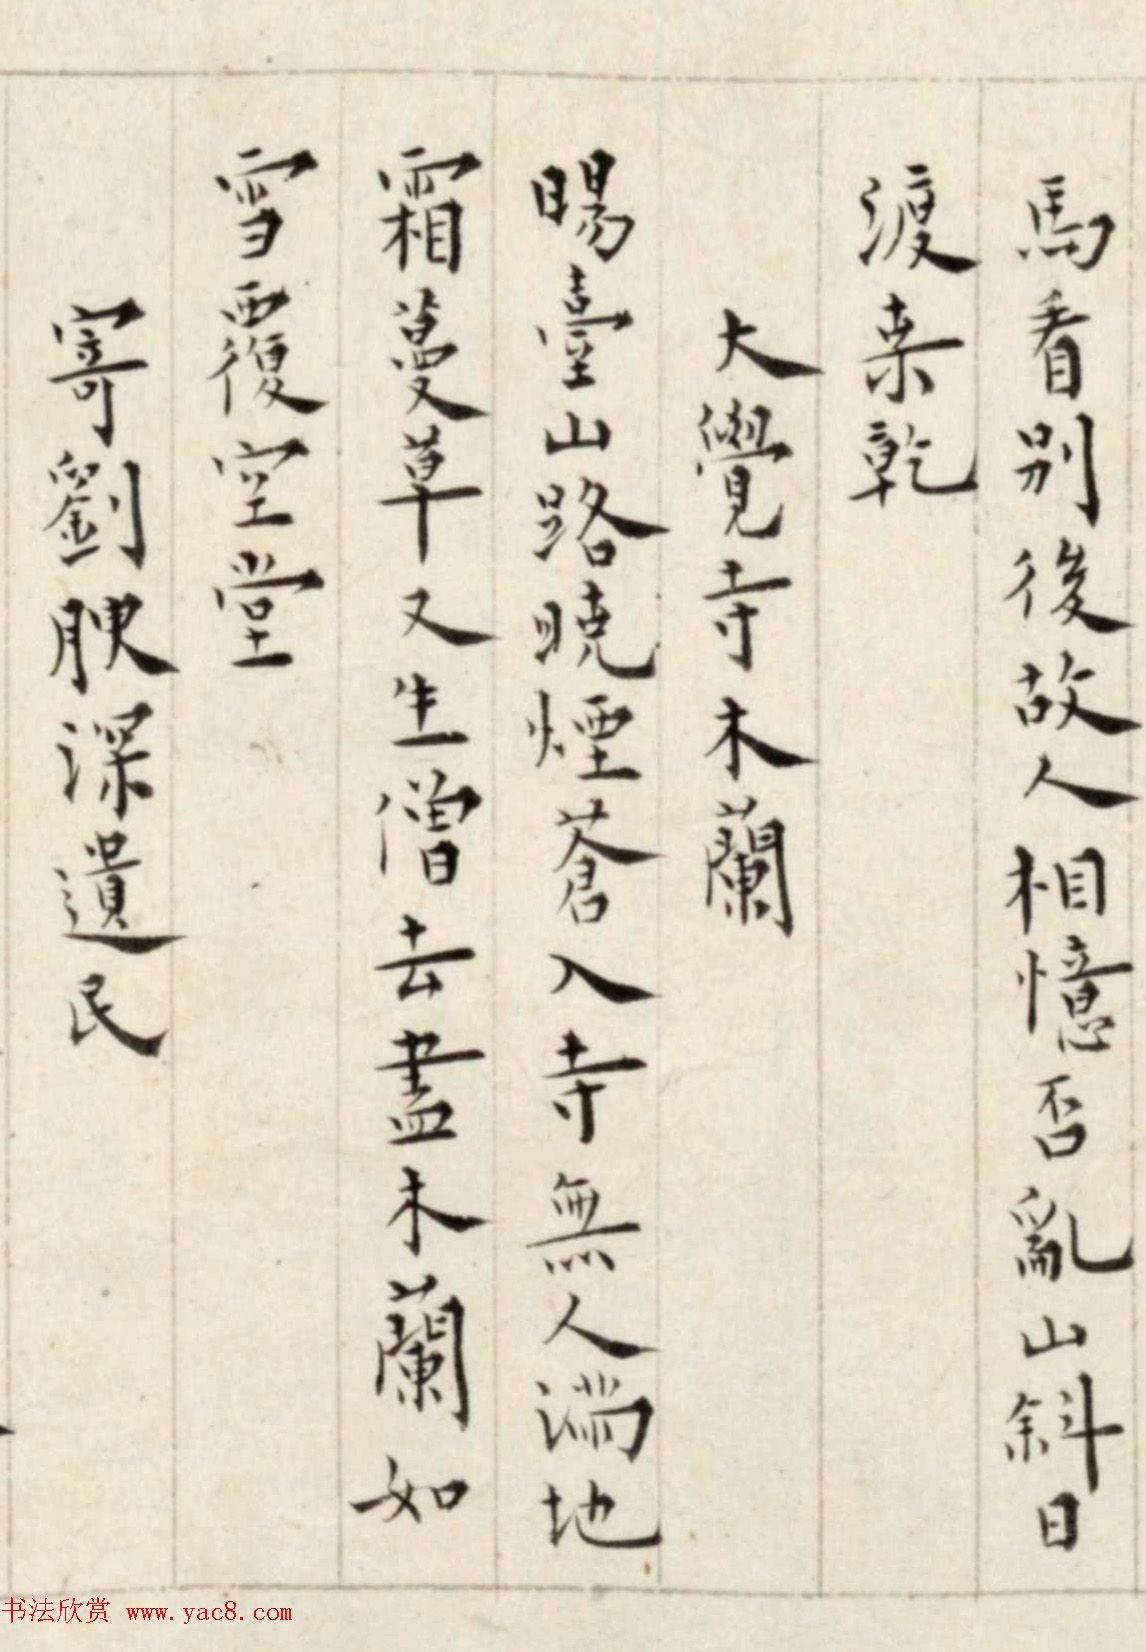 馬看別後故人相憶否亂山斜日
渡桒乾
大覺寺木蘭
暘臺山路曉煙蒼入寺無人滿地
霜蔓草又生僧去盡木蘭如
雪覆空堂
寄劉腴深遺民
书法欣赏 www.yac8.com